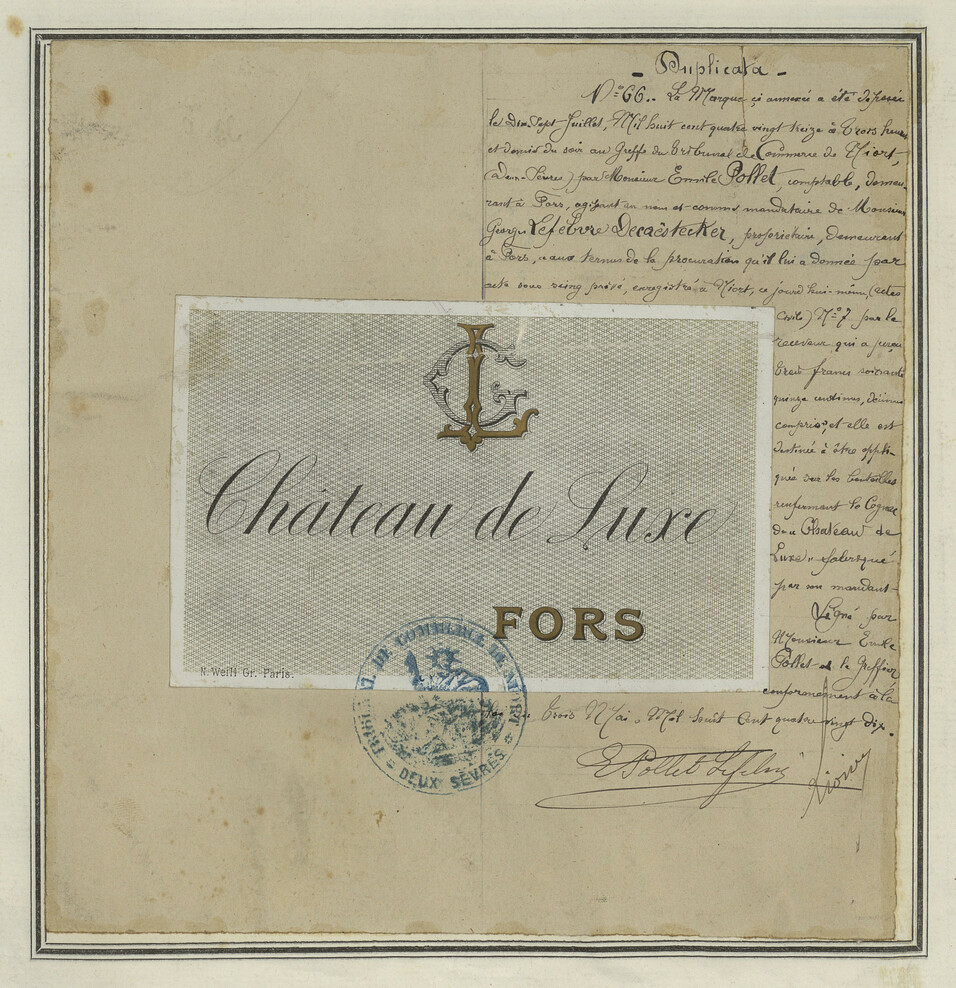 - Duplicata -
N° 66.. La Marque ci annexée a été déposée
le Dix-Sept Juillet, Mil huit cent quatre vingt treize à trois heures
et demie du soir au Greffe du Tribunal de Commerce de Niort,
(Deux-Sèvres) par Monsieur Emile Pollet, comptable, demeu
rant à Fors, agissant au nom et comme mandataire de Monsieur
Georges Lefebvre Decaëstecker, propriétaire, demeurant
à Fors, aux termes de la procuration qu'il lui a donnée par
acte sous seing privé, enregistré à Niort, ce jourd'hui-même, (actes
civils) N° 7 par le
receveur qui a perçu
trois francs soixante
quinze centimes, décimes
compris, et elle est
destinée à être appli-
quée sur les bouteilles
renfermant le Cognac
du "Chateau de
Luxe" fabriqué
par son mandant-
Signé par
Monsieur Emile
Pollet et le Greffier
conformément à la
trois Mai, Mil huit Cent quatre vingt dix.
E Pollet Lefebvre
GL
Château de Luxe
FORS
N. Weill Gr. Paris.
TRIBUNAL DE COMMERCE DE NIORT
* DEUX SÈVRES *